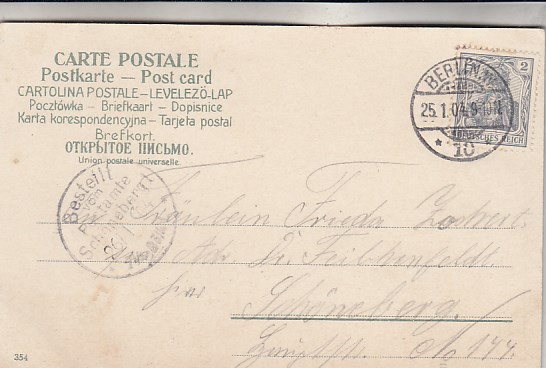 CARTE POSTALE
Postkarte — Post card
CARTOLINA POSTALE—LEVELEZÖ-LAP
Pocztówka — Briefkaart — Dopisnice
Karta korespondencyjna — Tarjeta postal
Brefkort.
ОТКРЫТОЕ ПИСЬМО.
Union postale universelle.
BERLIN
25.1.04.9-10
* 10
2
DEUTSCHES REICH
Bestellt
vom
Postamte
Schöneberg
26
Fräulein Frieda
Adr. Dr.
Schöneberg.
Hauptstr. No 144.
354